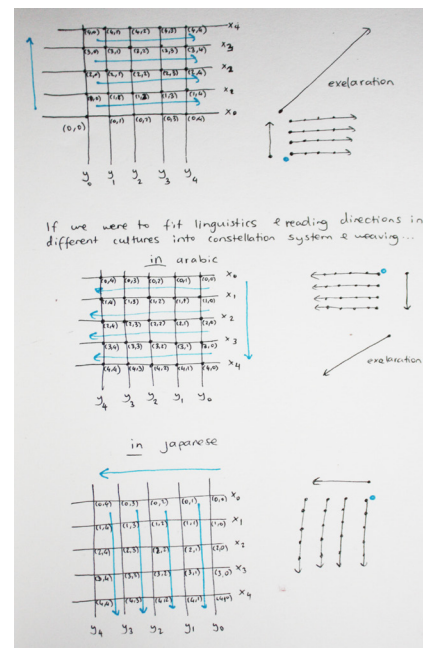 (4,0) (4,1) (4,2) (4,3) (4,4) x4
(3,0) (3,1) (3,2) (3,3) (3,4) x3
(2,0) (2,1) (2,2) (2,3) (2,4)
(1,3) (1,4) x
(0,0) (0,1) (0,2) (0,3) (0,4) x0
y0 y1 y2 y3 y4
exelaration
If we were to fit linguistics & reading directions in
different cultures into constellation system & weaving...
in arabic
(0,4) (0,3) (0,2) (0,1) (0,0) x0
(1,4) (1,3) (1,2) (1,1) (1,0) x1
(2,4) (2,3) (2,2) (2,1) (2,0) x2
(3,4) (3,3) (3,2) (3,1) (3,0) x3
(4,4) (4,3) (4,2) (4,1) (4,0) x4
y4 y3 y2 y1 y0
exelaration
in japanese
(0,4) (0,3) (0,2) (0,1) (0,0) x0
(1,4) (1,3) (1,2) (1,1) (1,0) x1
(2,4) (2,3) (2,2) (2,1) (2,0) x2
(3,4) (3,3) (3,2) (3,1) (3,0) x3
(4,4) (4,3) (4,2) (4,1) (4,0) x4
y4 y3 y2 y1 y0